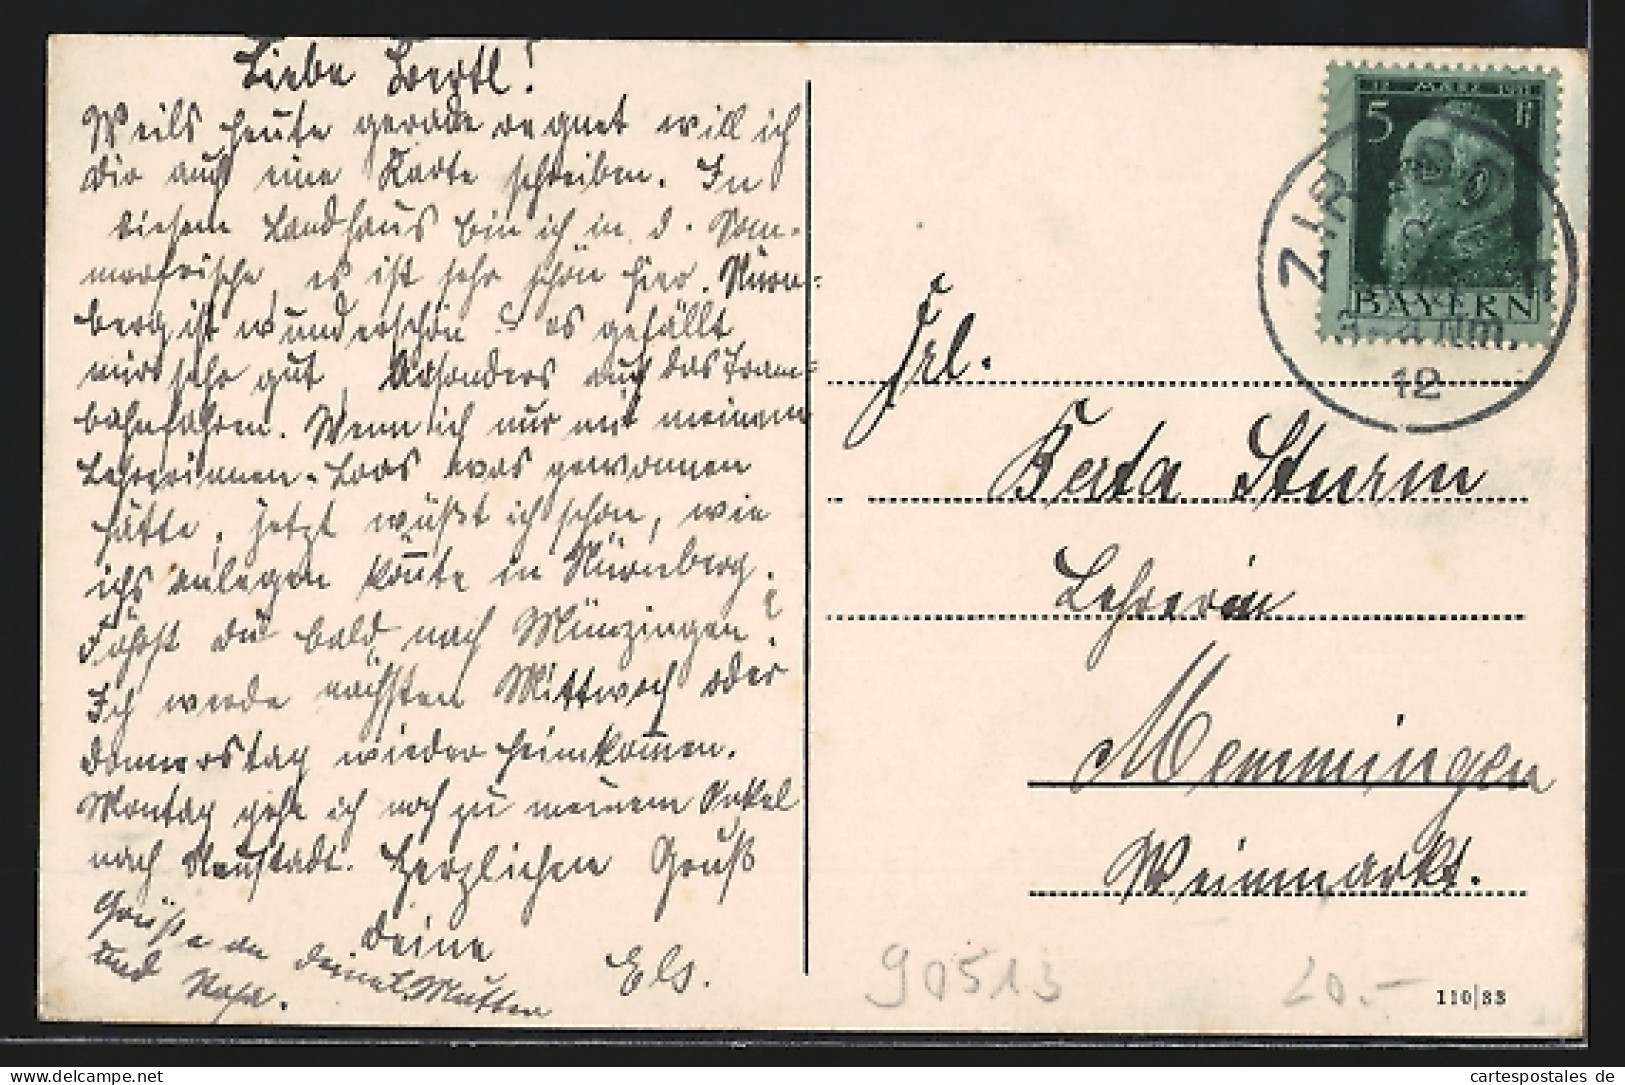 Liebe Bertl!
Weils heute gerade regnet will ich
dir auch eine Karte schreiben. In
diesem Landhaus bin ich in d. Som-
merfrische, es ist sehr schön hier. Nürn-
berg ist wunderschön u. es gefällt
mir sehr gut, besonders auch das Tram-
bahnfahren. Wenn ich nur mit meinem
Lehrerinnen-Loos was gewonnen
hätte, jetzt wüßt ich schon, wie
ichs anlegen kön̄te in Nürnberg.
Fährst du bald nach Münsingen?
Ich werde nächsten Mittwoch oder
Donnerstag wieder heimkom̄en.
Montag gehe ich noch zu meinem Onkel
nach Neustadt. Herzlichen Gruß
deine
Els.
Grüße an deine l. Mutter
und
12 MÄRZ 1911
5
BAYERN
ZIRNDORF
Nm.
12
Frl.
Berta Sturm
Lehrerin
Memmingen
Weinmarkt.
90513
20.-
110|33
www.delcampe.net
cartespostales de